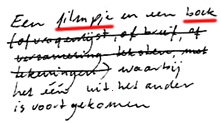 Een filmpje en een boek
(of vragenlijst, of brief, of
verzameling teksten, met
tekeningen) waarbij
het één uit het ander
is voortgekomen